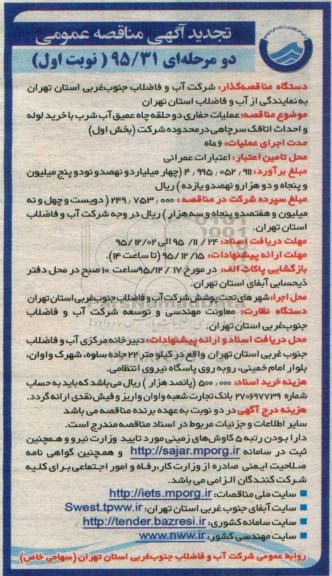 تجدید آگهی مناقصه عمومی
دو مرحله‌ای ۹۵/۳۱ ( نوبت اول )
دستگاه مناقصه‌گذار: شرکت آب و فاضلاب جنوب‌غربی استان تهران
به نمایندگی از آب و فاضلاب استان تهران
موضوع مناقصه: عملیات حفاری دو حلقه چاه عمیق آب شرب با خرید لوله
و احداث اتاقک سرچاهی در محدوده شرکت (بخش اول)
مدت اجرای عملیات: ۶ ماه
محل تامین اعتبار: اعتبارات عمرانی
مبلغ برآورد: ۴/۹۹۵/۰۵۲/۹۱۱ (چهار میلیارد و نهصد و نود و پنج میلیون
و پنجاه و دو هزار و نهصد و یازده ) ریال
مبلغ سپرده شرکت در مناقصه : ۲۴۹/۷۵۳/۰۰۰ (دویست و چهل و نه
میلیون و هفتصد و پنجاه و سه هزار ) ریال در وجه شرکت آب و فاضلاب
استان تهران.
مهلت دریافت اسناد: ۹۵/۱۱/۲۴ الی ۹۵/۱۲/۰۲
مهلت ارائه پیشنهادات: ۹۵/۱۲/۱۵ (تا ساعت ۱۴).
بازگشایی پاکات الف: در مورخ ۹۵/۱۲/۱۷ ساعت ۱۰ صبح در محل دفتر
ذیحسابی آبفای استان تهران.
محل اجرا: شهر های تحت پوشش شرکت آب و فاضلاب جنوب‌غربی استان تهران
دستگاه نظارت: معاونت مهندسی و توسعه شرکت آب و فاضلاب
جنوب‌غربی استان تهران.
محل دریافت اسناد و ارائه پیشنهادات: دبیرخانه مرکزی آب و فاضلاب
جنوب غربی استان تهران واقع در کیلومتر ۲۲ جاده ساوه، شهرک واوان،
بلوار امام خمینی، روبه روی پاسگاه نیروی انتظامی.
هزینه خرید اسناد: ۵۰۰/۰۰۰ (پانصد هزار ) ریال می‌باشد که باید به حساب
شماره ۲۷۰۶۹۷۷۳۹ بانک تجارت شعبه واوان واریز و فیش نقدی ارائه گردد.
هزینه درج آگهی در دو نوبت به عهده برنده مناقصه می باشد
سایر اطلاعات و جزئیات مربوط در اسناد مناقصه مندرج است.
دارا بودن رتبه ۵ کاوش‌های زمینی مورد تایید وزارت نیرو و همچنین
ثبت در سامانه http://sajar.mporg.ir و همچنین گواهی نامه
صلاحیت ایمنی صادره از وزارت کار، رفاه و امور اجتماعی برای کلیه
شرکت کنندگان الزامی می باشد.
سایت ملی مناقصات: http://iets.mporg.ir
سایت آبفای جنوب غربی استان تهران: Swest.tpww.ir
سایت سامانه کشوری: http://tender.bazresi.ir
سایت مهندسی کشور: www.nww.ir
روابط عمومی شرکت آب و فاضلاب جنوب‌غربی استان تهران (سهامی خاص)